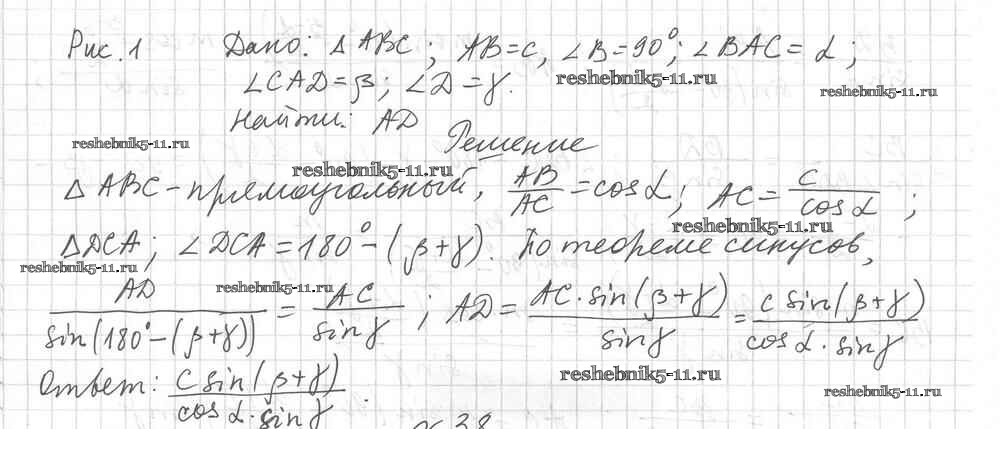 Рис. 1 Дано: △ ABC; AB=c, ∠B=90°; ∠BAC= α;
reshebnik5-11.ru
∠CAD=β; ∠D=γ.
reshebnik5-11.ru
Найти: AD
reshebnik5-11.ru
Решение
reshebnik5-11.ru
△ ABC - прямоугольный, AB/AC = cos α; AC = c/cos α;
reshebnik5-11.ru
△DCA; ∠DCA = 180° - (β+γ). По теореме синусов,
reshebnik5-11.ru
reshebnik5-11.ru
AD/sin(180° - (β+γ)) = AC/sin γ; AD = AC·sin(β+γ)/sin γ = c sin(β+γ)/cos α · sin γ
reshebnik5-11.ru
Ответ: c sin(β+γ)/cos α · sin γ.
reshebnik5-11.ru
38